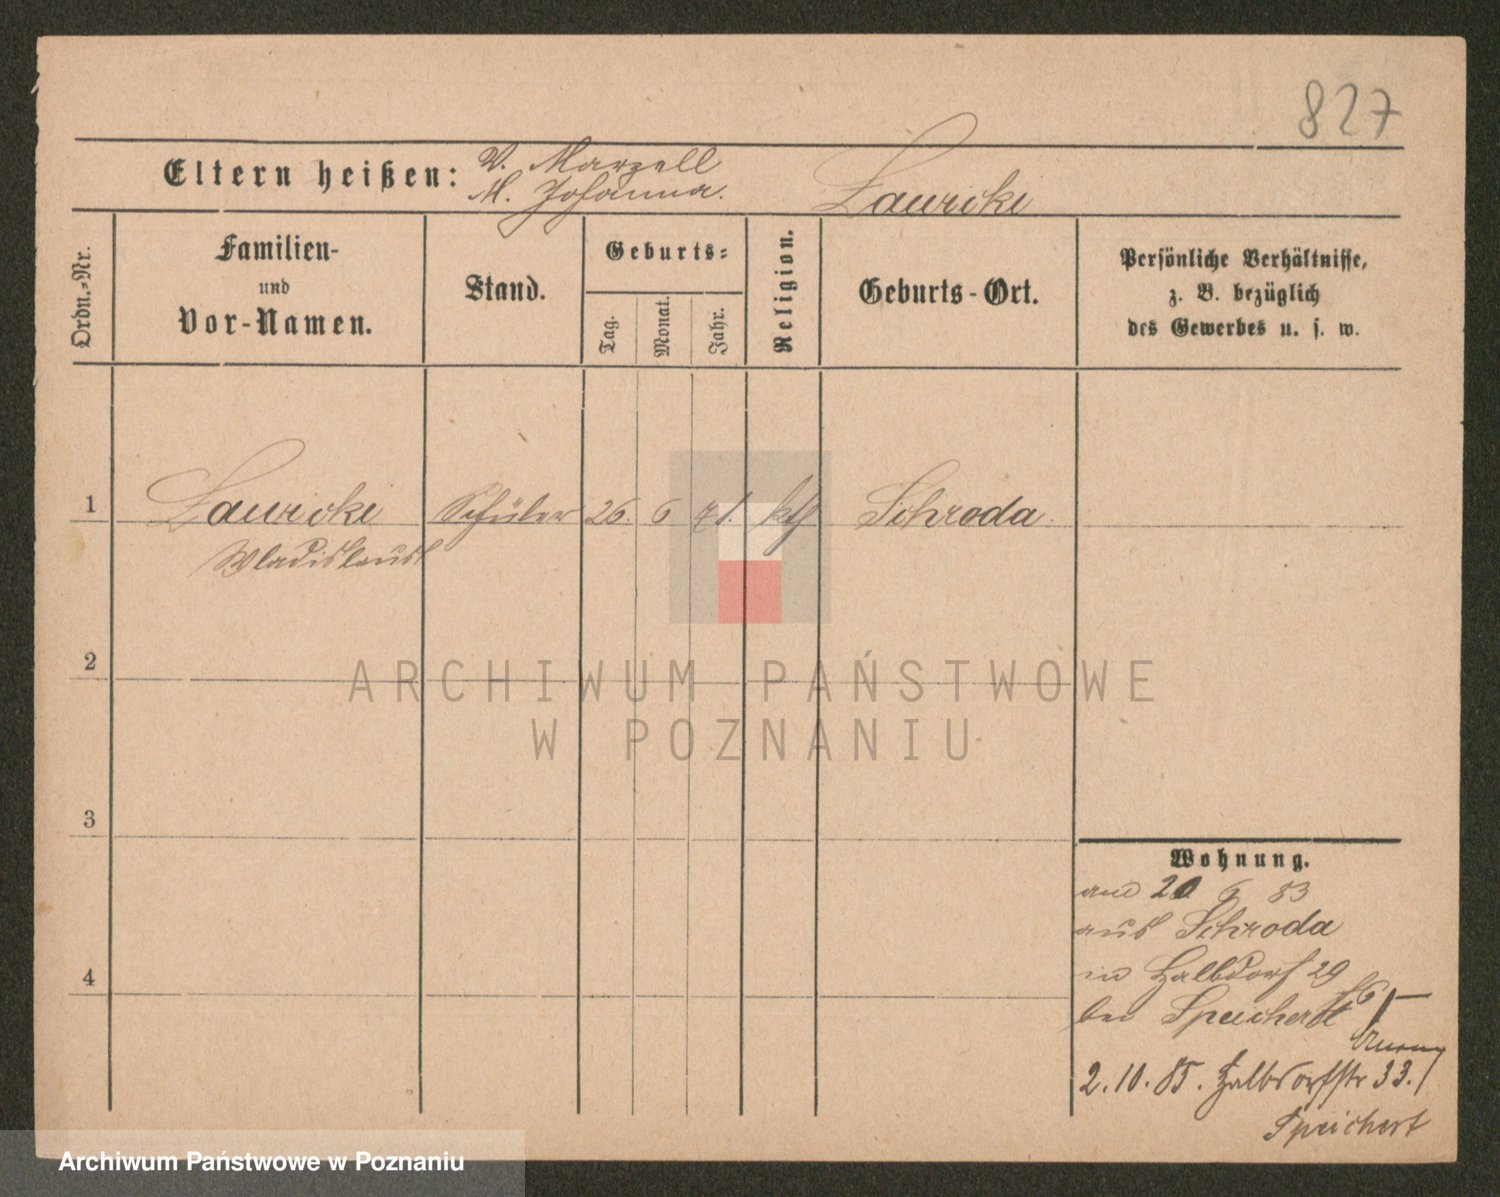 827
Eltern heißen: V. Marzell
M. Johanna. Laurcke
Ordn.-Nr.
Familien-
und
Vor-Namen.
Stand.
Geburts-
Tag.
Monat.
Jahr.
Religion.
Geburts-Ort.
Persönliche Verhältnisse,
z. B. bezüglich
des Gewerbes u. s. w.
1 Schüler 26. 6 71. kth Schroda
Wladislaus
2
3
4
Wohnung.
6 83
aus Schroda
in Halbdorf 29
bei Speichert
2.10.85. Halbdorfstr 33.
Speichert
ARCHIWUM PAŃSTWOWE
W POZNANIU
Archiwum Państwowe w Poznaniu